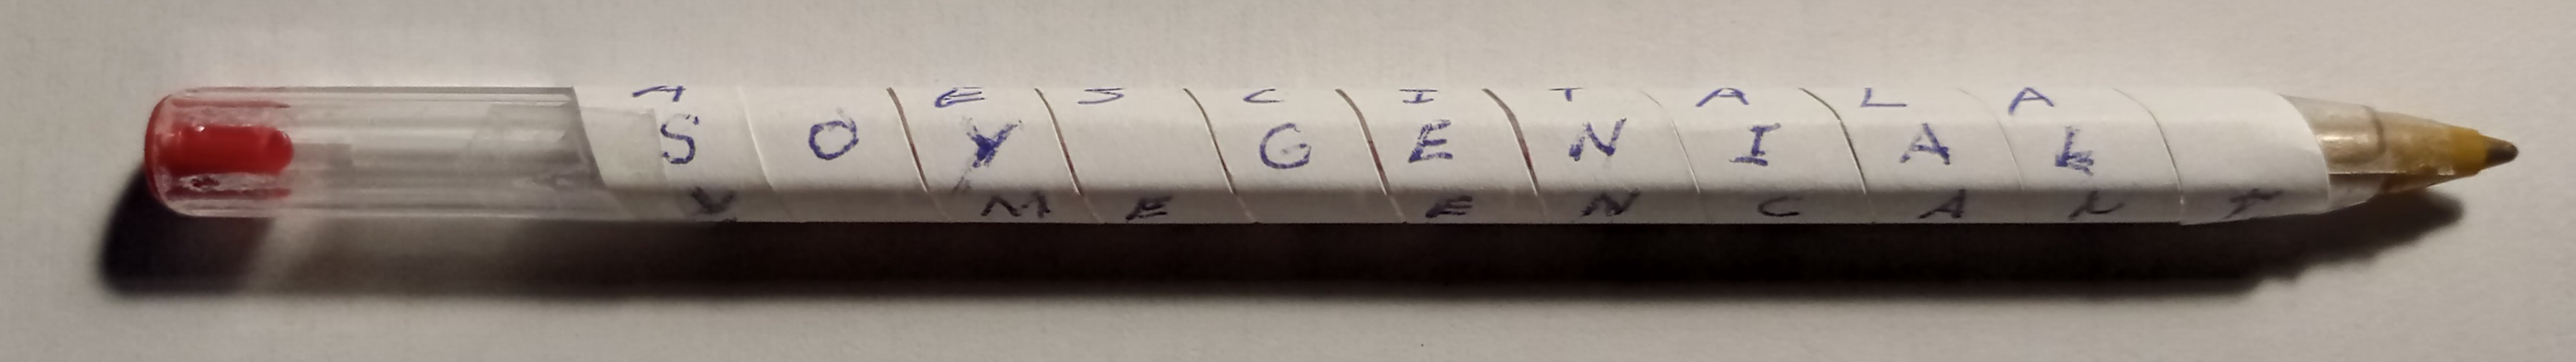 A ESCITALA
SOY GENIAL
Y ME ENCANT